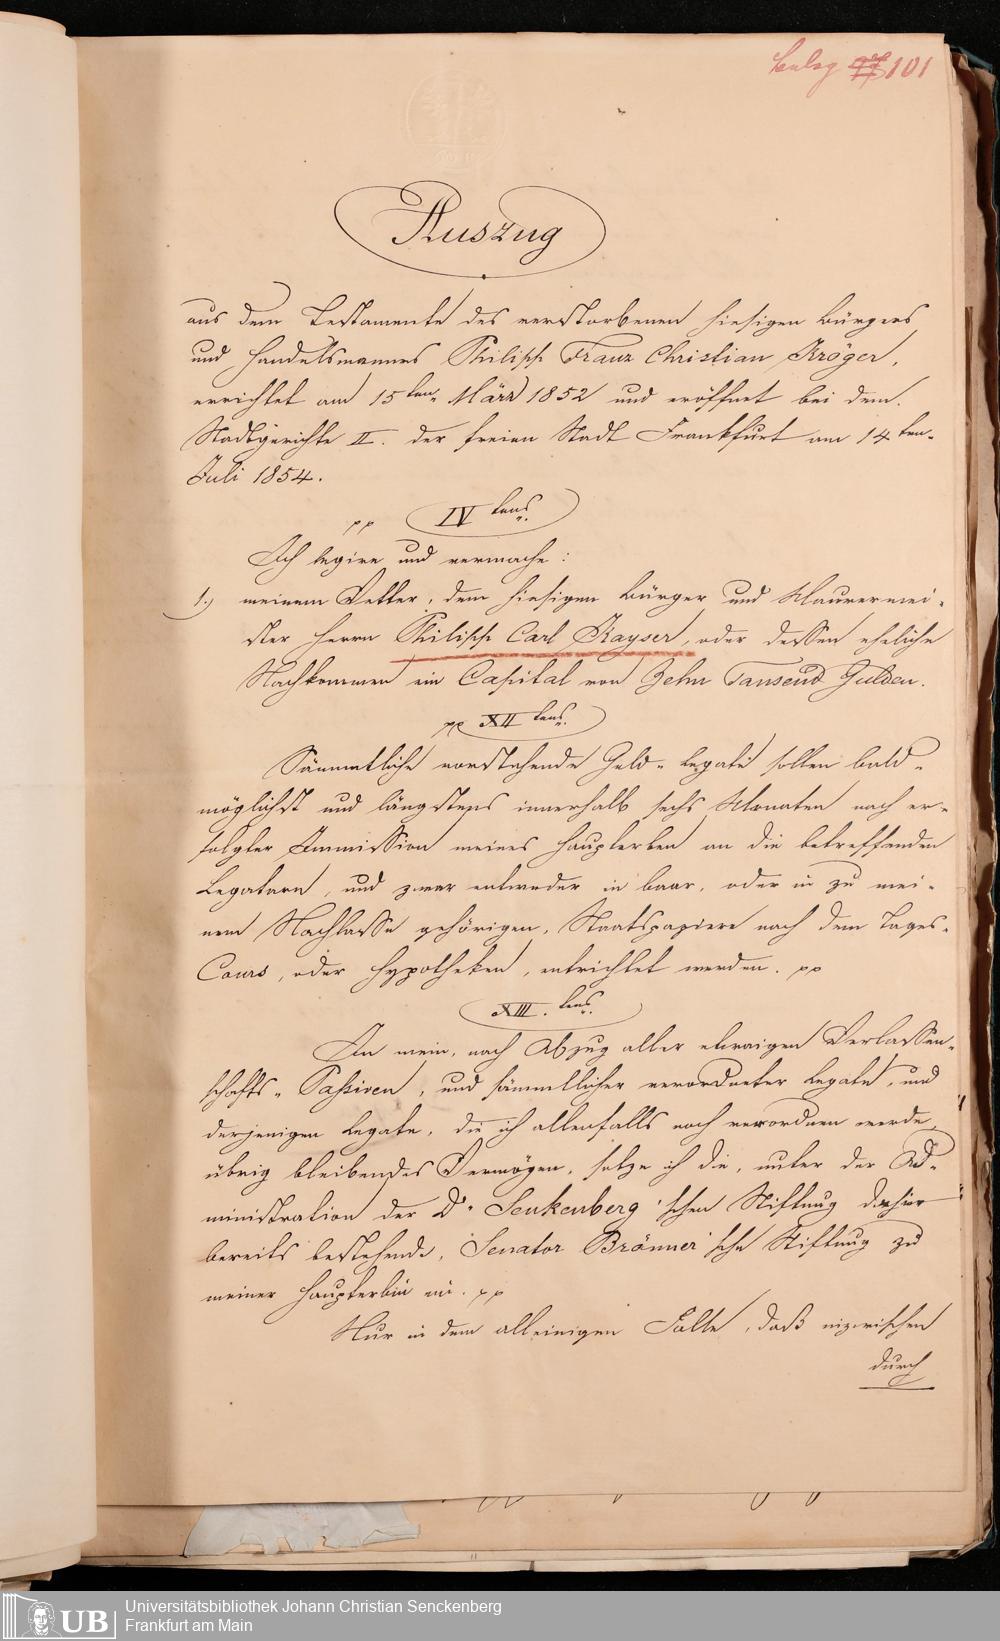 101
Auszug
aus dem Testamente des verstorbenen hiesigen Bürgers
und Handelsmannes Philipp Franz Christian Kröger,
errichtet am 15ten März 1852 und eröffnet bei dem
Stadtgerichte II. der freien Stadt Frankfurt am 14ten
Juli 1854.
pp IVtens.
Ich legire und vermache:
1.) meinem Vetter, dem hiesigen Bürger und Maurermei-
ster Herrn Philipp Carl Kayser, oder dessen eheliche
Nachkommen ein Capital von Zehn Tausend Gulden.
pp XIItens.
Sämmtliche vorstehende Geld-Legate sollen bald-
möglichst und längstens innerhalb sechs Monaten nach er-
folgter Immission meines Haupterben an die betreffenden
Legatare, und zwar entweder in baar, oder in zu mei-
nem Nachlasse gehörigen, Staatspapiere nach dem Tages-
Cours, oder Hypotheken, entrichtet werden. pp
XIII.tens.
In mein, nach Abzug aller etwaigen Verlassen-
schafts-Passiven, und sämmtlicher verordneter Legate, und
derjenigen Legate, die ich allenfalls noch verordnen werde,
übrig bleibendes Vermögen, setze ich die, unter der Ad-
ministration der Dr. Senkenberg'schen Stiftung dahier
bereits bestehende, Senator Brönner'sche Stiftung zu
meiner Haupterbin ein. pp
Nur in dem alleinigen Falle, daß inzwischen
durch
UB
Universitätsbibliothek Johann Christian Senckenberg
Frankfurt am Main